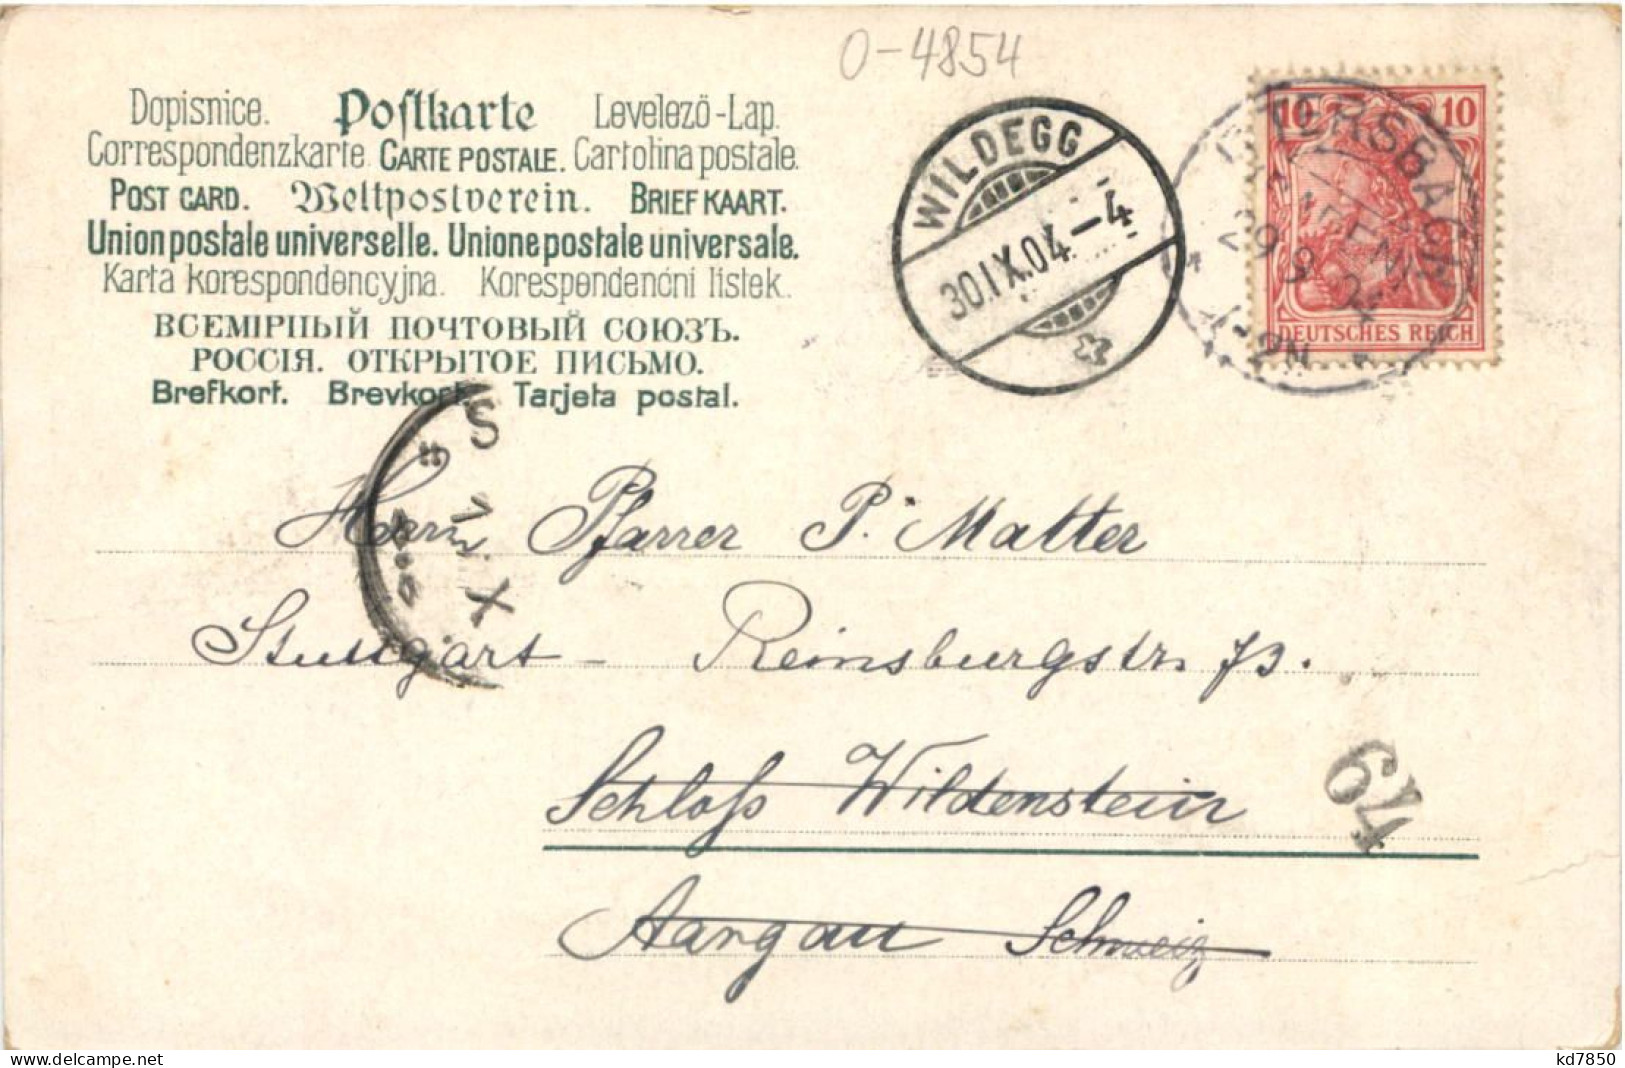 O-4854
Dopisnice. Postkarte Levelezö-Lap.
Correspondenzkarte. CARTE POSTALE. Cartolina postale.
POST CARD. Weltpostverein. BRIEFKAART.
Union postale universelle. Unione postale universale.
Karta korespondencyjna. Korespondenčni listek.
ВСЕМІРНЫЙ ПОЧТОВЫЙ СОЮЗЪ.
РОССІЯ. ОТКРЫТОЕ ПИСЬМО.
Brefkort. Brevkort. Tarjeta postal.
WILDEGG
30.IX.04-4
10 10
DEUTSCHES REICH
TERSBACH
29 9 04
1-2N.
S
1. X
Herrn Pfarrer P. Matter
Stuttgart - Reinsburgstr. 73.
Schloß Wildenstein
64
Aargau Schweiz
kd7850